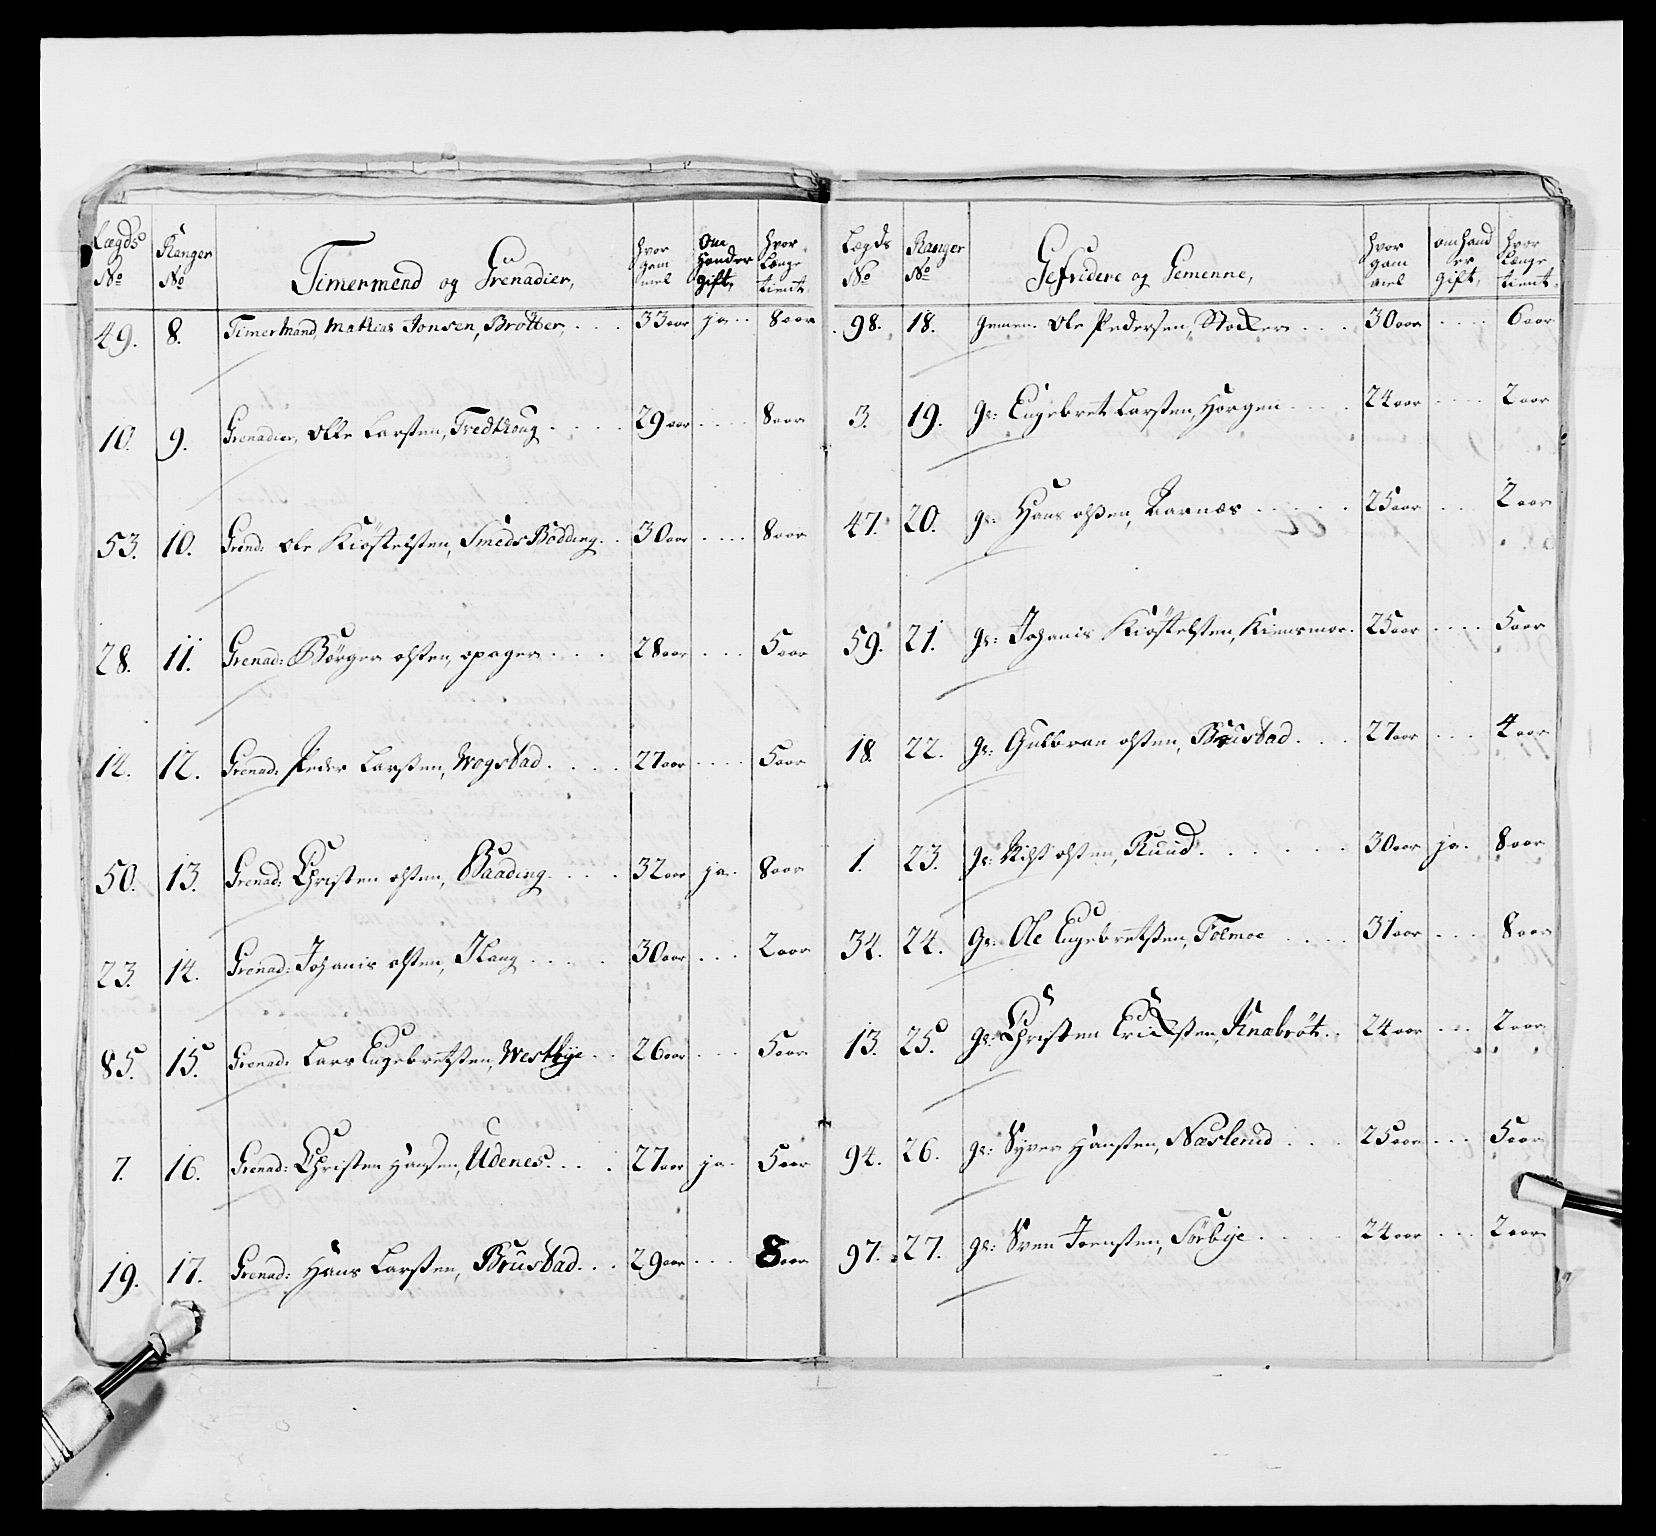 Lægds No | Ranger No | Timermend og Grenadier, | hvor gam mel | Om Hånder gift, | hvor Længe tient.
49. | 8. | Timermand, Mathias Jonsen, Brotter, | 33 aar | ja | 8 aar
10. | 9. | Grenadier, Olle Larsten, Tredkoug | 29 aar | | 8 aar
53. | 10. | Grend: Ole Kiöstelsten, Smeds Bödding | 30 aar | | 8 aar
28. | 11. | Grenad: Börger olsten, opager | 28 aar | | 5 aar
14. | 12. | Grenad: Peder Larsten, Wogstad | 27 aar | | 5 aar
50. | 13. | Grenad: Christen olsten, Baading | 32 aar | ja | 8 aar
23. | 14. | Grenad: Johanis olsten, Haug | 30 aar | | 2 aar
85. | 15. | Grenad: Lars Engebretsten, Westbye | 26 aar | | 5 aar
7. | 16. | Grenad: Christen Hansen, Udenes | 27 aar | ja | 5 aar
19. | 17. | Grenad: Hans Larsten, Brustad | 29 aar | | 8 aar
Lægds No | Ranger No | Gefridere og Gemenne, | hvor gam mel | om hand er gift, | hvor Længe tient.
98. | 18. | Gemen. Ole Pedersen, Stocker | 30 aar | | 6 aar
3. | 19. | gs: Engebret Larsten, Horgen | 24 aar | | 2 aar
47. | 20. | gs: Hans olsten, Aarnæs | 25 aar | | 2 aar
59. | 21. | gs: Johanis Kiöstelsten, Kiensmoe | 25 aar | | 5 aar
18. | 22. | gs: Gulbran olsten, Brustad | 27 aar | | 4 aar
1. | 23. | gs: olsten, Ruud | 30 aar | ja | 8 aar
34. | 24. | gs: Ole Engebretsten, Tolmoe | 31 aar | | 8 aar
13. | 25. | gs: Christen Ericksten, Knabröt | 24 aar | | 2 aar
94. | 26. | gs: Syver Hansten, Næslerud | 25 aar | | 5 aar
97. | 27. | gs: Sven Joensten, Sörbye | 24 aar | | 2 aar